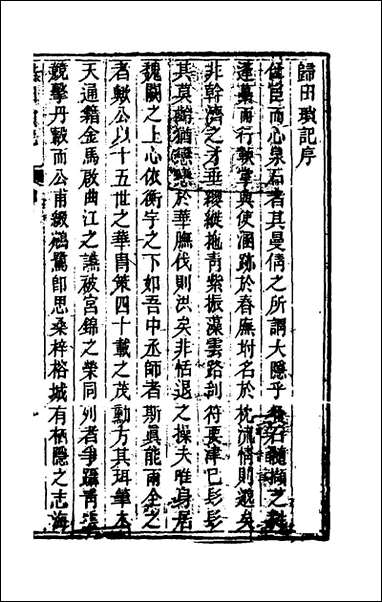 歸田瑣記序
仕宦而心泉石者其曼倩之所謂大隱乎
蓬藁而行軼掌與使溷跡於春廡坿名於枕流情則遯矣
非幹濟之才垂纓縱拖靑紫振藻雲路剖符要津已髟髟
其莫齡猶戀戀於華膴伐則洪矣非恬退之操夫唯身居
魏闕之上心依衡宇之下如吾中丞師者斯眞能兩全之
者歟公以十五世之華胄策四十載之茂勳方其珥筆木
天通籍金馬啟曲江之讌被宮錦之榮同列者爭躡靑
競擊丹轂而公甫綴鴻鷺卽思桑梓榕城有栖隱之志海